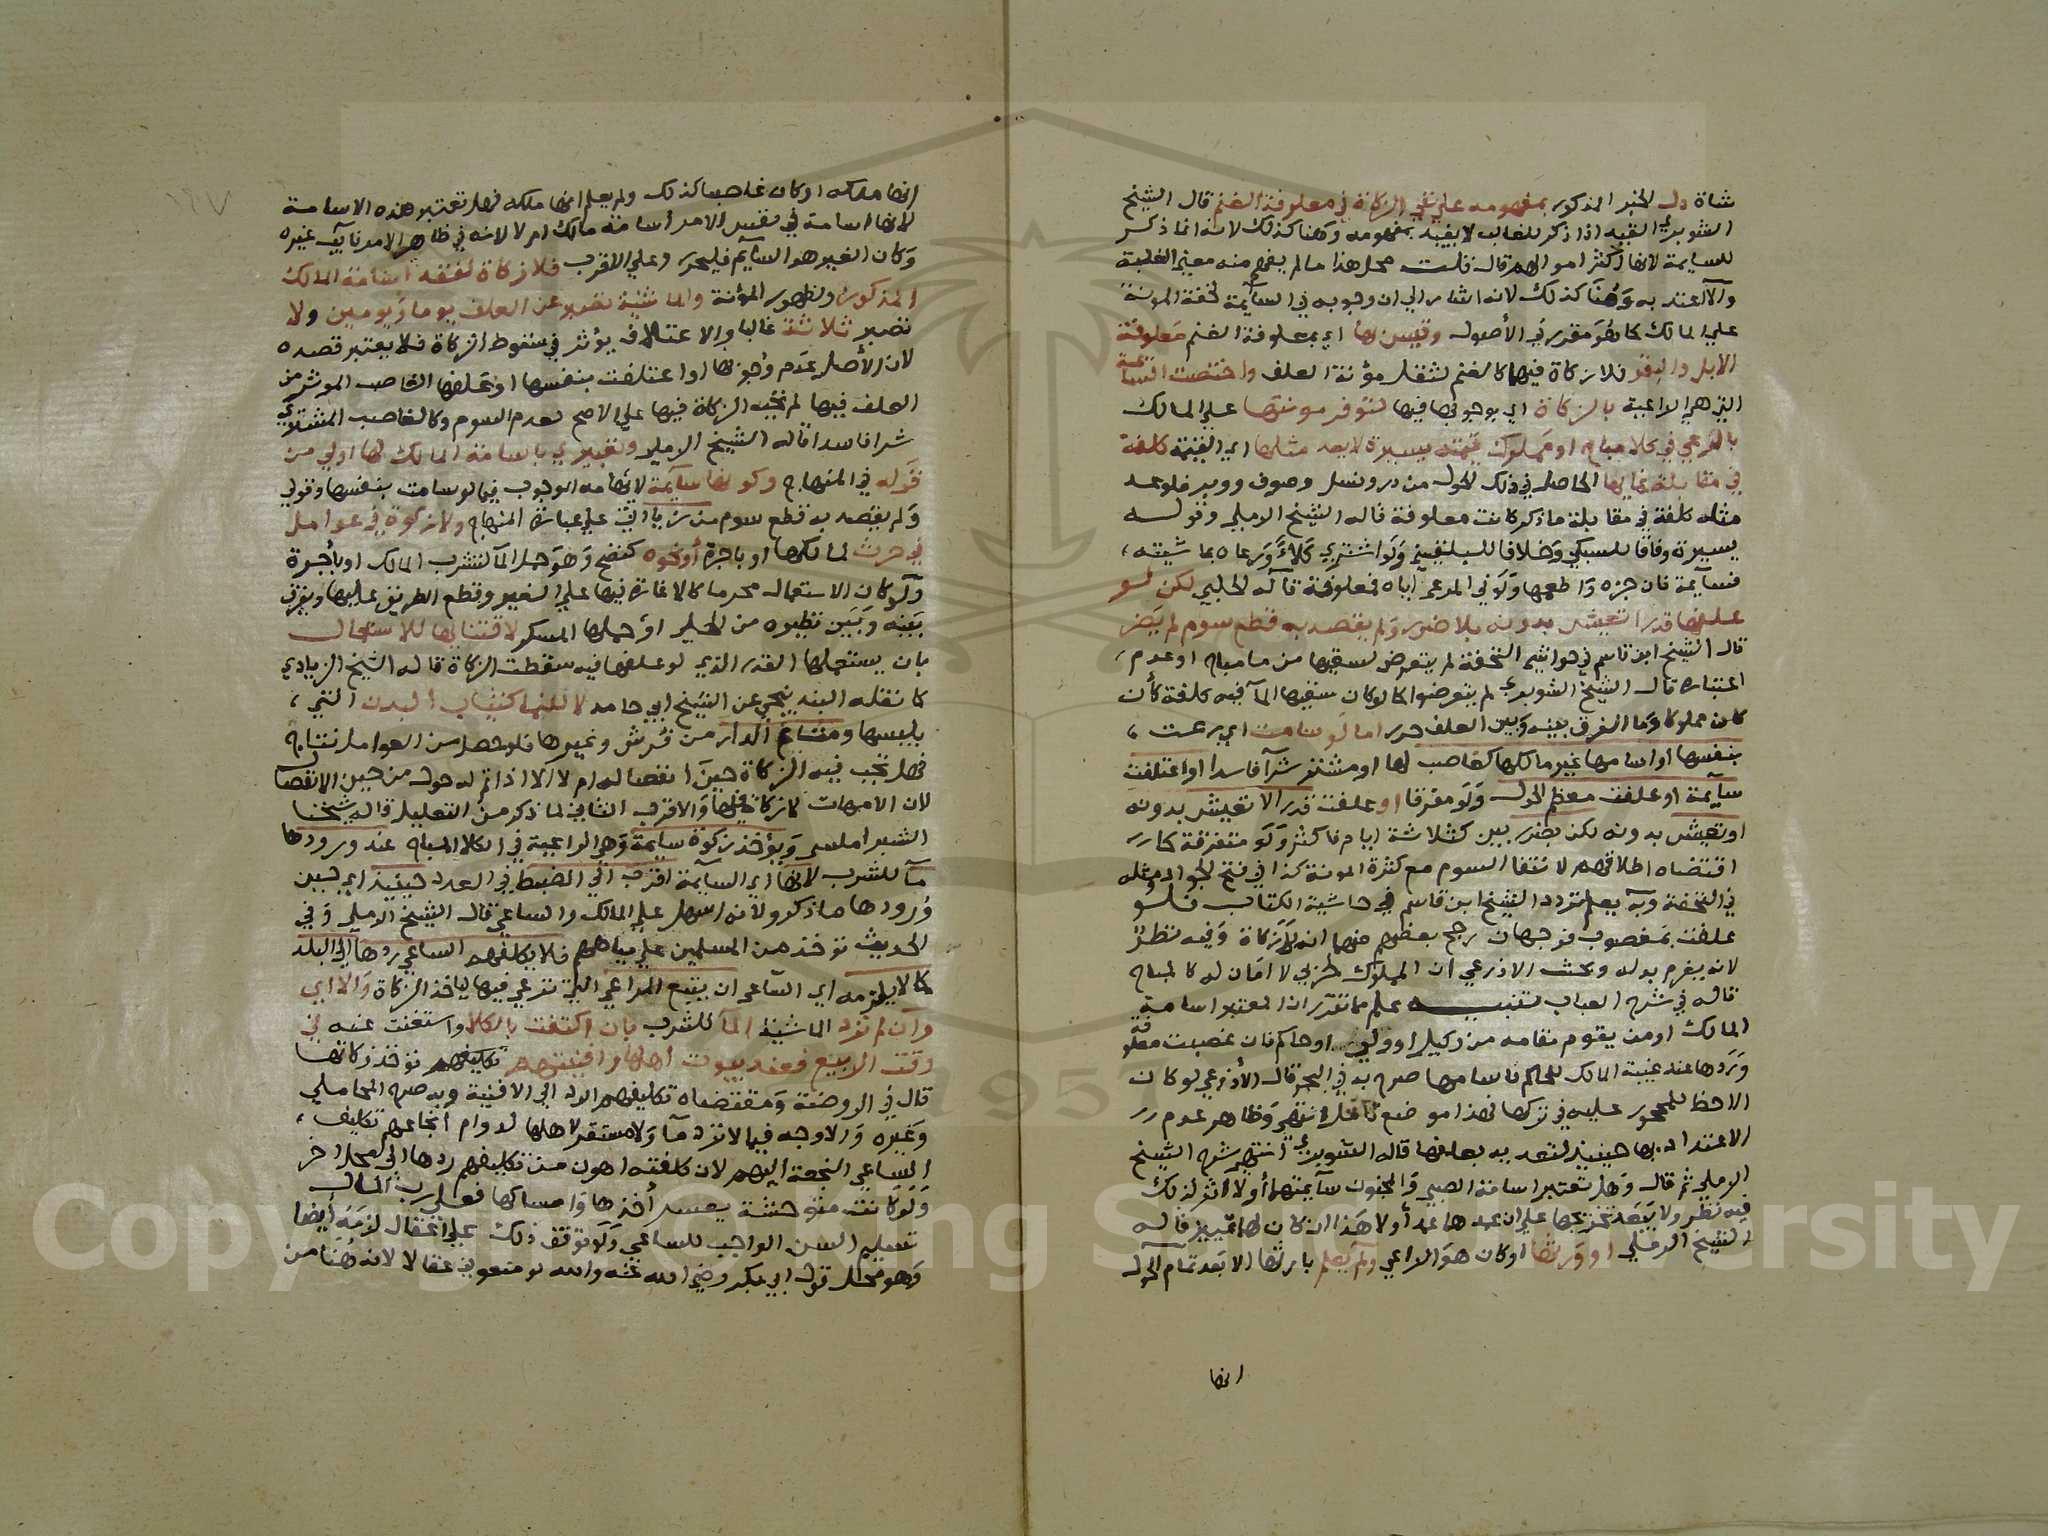 شاة دل الخبر المذكور بمفهومه علي نفي الزكاة في معلوفة الغنم قال الشيخ
الشوبري القيد اذا ذكر للغالب لا يفيد بمفهومه وهنا كذلك لانه انما ذكر
للسايمة لانها اكثر اموالهم قال قلت محل هذا ما لم يفهم منه معني الغلبة
والا اعتد به وهنا كذلك لانه اشار الي ان وجوبه في السآيمة لخفة المونة
علي المالك كما هو مقرر في الأصول وقيس بها اي بمعلوفة الغنم معلوفة
الابل والبقر فلا زكاة فيها كالغنم لثقل مؤنة العلف واختصت السائمة
التي هي الراعية بالزكاة اي بوجوبها فيها لتوفر مونتها علي المالك
بالرعي في كلا مباح او مملوك قيمته يسيرة لا يعد مثلها اي القيمة كلفة
في مقابلة نمايها الحاصل في ذلك الحول من در ونسل وصوف ووبر فلو عد
مثله كلفة في مقابلة ما ذكر كانت معلوفة قاله الشيخ الرملي وقوله
يسيرة وفاقا للسبكي وخلافا للبلقيني ولو اشتري كلاء ورعاه بما شيته
فسآيمة فان جزه واطعمها ولو في المرعي اياه فمعلوفة قاله الحلبي لكن لو
علفها قدرا تعيش بدونه بلا ضرر ولم يقصد به قطع سوم لم يضر
قال الشيخ ابن قاسم في حواشي التحفة لم يتعرض لسقيها من ما مباح او عدم
اعتباره قال الشيخ الشوبري لم يتعرضوا لما لو كان سقيها المآ فيه كلفة كأن
كان مملوكا وما الفرق بينه وبين العلف حرر اما لو سامت اي رعت
بنفسها او اسامها غير مالكها كغاصب لها او مشتر شرآ فاسدا او اعتلفت
سآيمة او علفت معظم الحول ولو مفرقا او علفت قدر الا تعيش بدونه
او تعيش بدونه لكن بضرر بين كثلاثة ايام فاكثر ولو متفرقة كما
اقتضاه اطلاقهم لانتفا السوم مع كثرة المونة كذا في فتح الجواد ومثله
في التحفة وبه يعلم تردد الشيخ ابن قاسم في حاشية الكتاب فلو
علفت بمغصوب فوجهان رجح بعضهم منهما انه لا زكاة وفيه نظر
لانه يغرم بدله وبحث الاذرعي ان المملوك لحربي لا امان له كالمباح
قاله في شرح العباب تنبيه علم مما تقرر ان المعتبر اسامة
المالك او من يقوم مقامه من وكيل او ولي او حاكم فان غصبت معلوفة
وردها عند غيبة المالك للحاكم فاسامها صرح به في البحر قال الأذرعي لو كان
الاحظ للمحجور عليه في تركها فهذا موضع تامل انتهي وظاهر عدم
الاعتداد بها حينيذ لتعديه بعلفها قاله الشوبري انتهي شرح الشيخ
الرملي ثم قال وهل تعتبر اسامة الصبي والمجنون سآيمتهما أو لا اثر لذلك
فيه نظر ولا يبعد تخريجها علي ان عمدهما عمد أو لا هذا ان كان لهما تمييز قاله
الشيخ الرملي او ورثها او كان هو الراعي ولم يعلم بارثها الا بعد تمام الحول
انها
انها ملكه او كان غاصبا كذلك ولم يعلم انها ملكه فهل تعتبر هذه الاسامة
لانها اسامة في نفس الامر اسامة مالك ام لا لانه في ظاهر الامر نايب غيره
وكان الغير هو السآيم فليحرر وعلي الاقرب فلا زكاة لفقد اسامة المالك
المذكورة ولظهور المؤنة والماشية تصبر عن العلف يوما ويومين ولا
تصبر ثلاثة غالبا والاعتلاف يؤثر في سقوط الزكاة فلا يعتبر قصده
لان الأصل عدم وجوبها او اعتلفت بنفسها او علفها الغاصب الموثر من
العلف فيها لم تجب الزكاة فيها علي الاصح لعدم السوم وكالغاصب المشتري
شرا فاسدا قاله الشيخ الرملي وتعبيري باسامة المالك لها اولي من
قوله في المنهاج وكونها سآيمة لايهامه الوجوب فيما لو سامت بنفسها وقولي
ولم يقصد به قطع سوم من زيادتي علي عبارة المنهاج ولا زكوة في عوامل
في حرث لمالكها او باجرة أو نحوه كنضح وهو حمل المآ لشرب المالك او بأجرة
ولو كان الاستعمال محرما كالاغارة فيها علي الغير وقطع الطريق عليها ويفرق
بينه وبين نظيره من الحلي او حملها المسكر لاقتنايها للاستعمال
بان يستعملها القدر الذي لو علفها فيه سقطت الزكاة قاله الشيخ الزيادي
كما نقله البندنيجي عن الشيخ ابي حامد لا للنما كثياب البدن التي
يلبسها ومتاع الدار من فرش وغيرها فلو حصل من العوامل نتاج
فهل تجب فيه الزكاة حين انفصاله ام لا الا اذا تم له حول من حين الانفصال
لان الامهات لا زكاة فيها والاقرب الثاني لما ذكر من التعليل قاله شيخنا
الشبراملسي ويؤخذ زكوة سايمة وهي الراعية في الكلا المباح عند ورودها
مآ للشرب لانها اي السآيمة اقرب الي الضبط في العدد حينيذ اي حين
ورودها ما ذكر ولانه اسهل علي المالك والساعي قال الشيخ الرملي وفي
الحديث تؤخذ من المسلمين علي مياههم فلا يكلفهم الساعي ردها الي البلد
كما لا يلزمه اي الساعي ان يتبع المراعي التي ترعي فيها لياخذ الزكاة والا اي
وان لم ترد الماشية المآ للشرب بان اكتفت بالكلا واستغنت عنه في
وقت الربيع فعند بيوت اهلها وافنيتهم تكليفهم تؤخذ زكاتها
قال في الروضة ومقتضاه تكليفهم الرد الي الافنية وبه صرح المحاملي
وغيره والاوجه فيما لا ترد مآ ولا مستقر لاهلها لدوام انتجاعهم تكليف
الساعي النجعة اليهم لان كلفته اهون من تكليفهم ردها الي محل اخر
ولو كانت متوحشة يعسر أخذها وامساكها فعلي رب المال
تسليم السن الواجب للساعي ولو توقف ذلك علي عقال لزمه أيضا
وهو محمل قول ابي بكر رضي الله عنه والله لو منعوني عقالا لانه هنا من